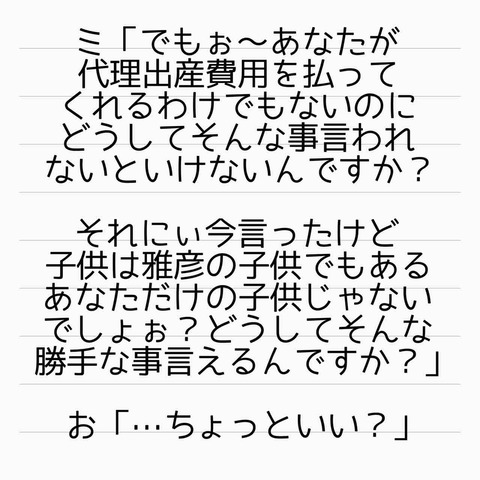 ミ「でもぉ〜あなたが
代理出産費用を払って
くれるわけでもないのに
どうしてそんな事言われ
ないといけないんですか？
それにぃ今言ったけど
子供は雅彦の子供でもある
あなただけの子供じゃない
でしょぉ？どうしてそんな
勝手な事言えるんですか？」
お「…ちょっといい？」